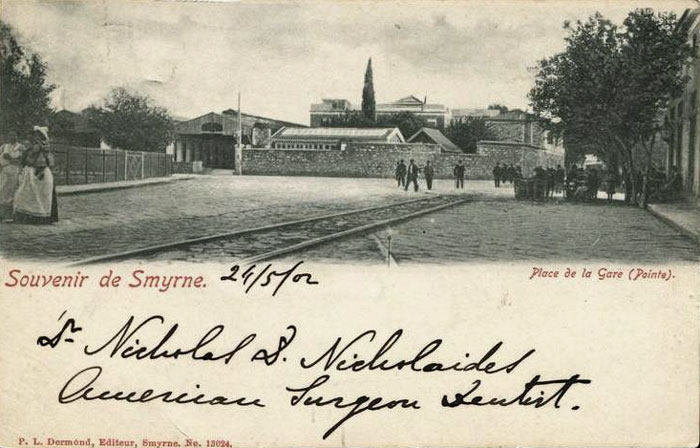 Souvenir de Smyrne. 24/5/02
Place de la Gare (Pointe).
Dr Nicholas D. Nicholaides
American Surgeon Dentist.
P. L. Dermond, Editeur, Smyrne. No. 13024.